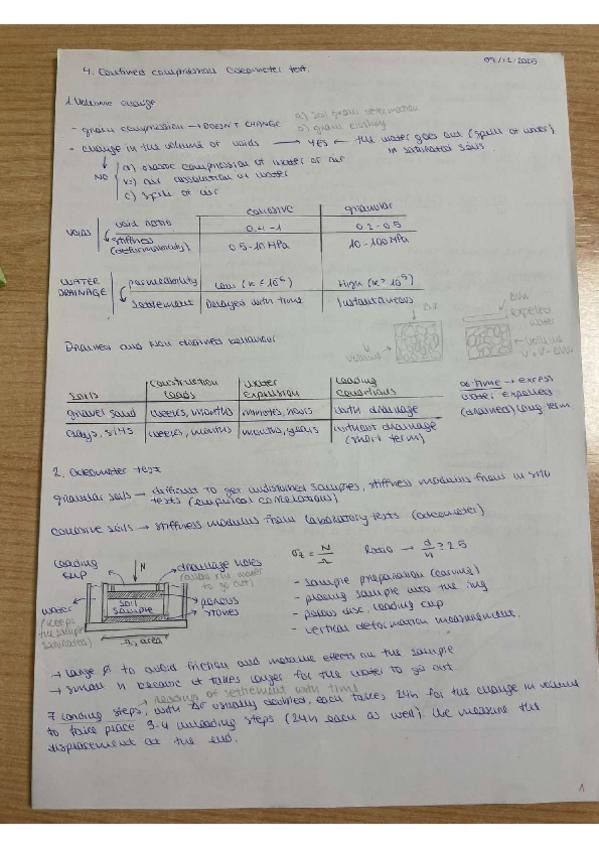 09/12/2025
4. Confined compression Oedometer test.
1. Volume change
- grain compression → DOESN'T CHANGE a) soil grain deformation
b) grain crushing
- change in the volume of voids → YES ← the water goes out (spill of water)
in saturated soils
NO a) elastic compression of water or air
b) air dissolution in water
c) spill of air
cohesive granular
VOIDS void ratio 0.4-1 0.2-0.5
stiffness (deformability) 0.5-10 MPa 10-100 MPa
WATER DRAINAGE permeability Low High
settlement Delayed with time Instantaneous
Drained and Non drained behaviour
expelled water
volume
volume
V = V - ΔVw
soils construction loads water expulsion loading conditions
gravel sand weeks, months minutes, hours with drainage
clays, silts weeks, months months, years without drainage (short term)
∞ time → excess
water expelled
(drained) long term
2. Oedometer test
granular soils → difficult to get undisturbed samples, stiffness modulus from in situ
tests (empirical correlations)
cohesive soils → stiffness modulus from laboratory tests (oedometer)
loading cap
N
drainage holes
(allows the water to go out)
water
(keeps the sample saturated)
SOIL SAMPLE
porous stones
area
Ratio →
- sample preparation (carving)
- placing sample into the ring
- porous disc, loading cap
- vertical deformation measurement.
→ large ø to avoid friction and metallic effects on the sample
→ small h because it takes longer for the water to go out.
→ reading of settlement with time
7 loading steps, with usually doubled, each takes 24h for the change in volume
to take place 3-4 unloading steps (24h each as well). We measure the
displacement at the end.
1